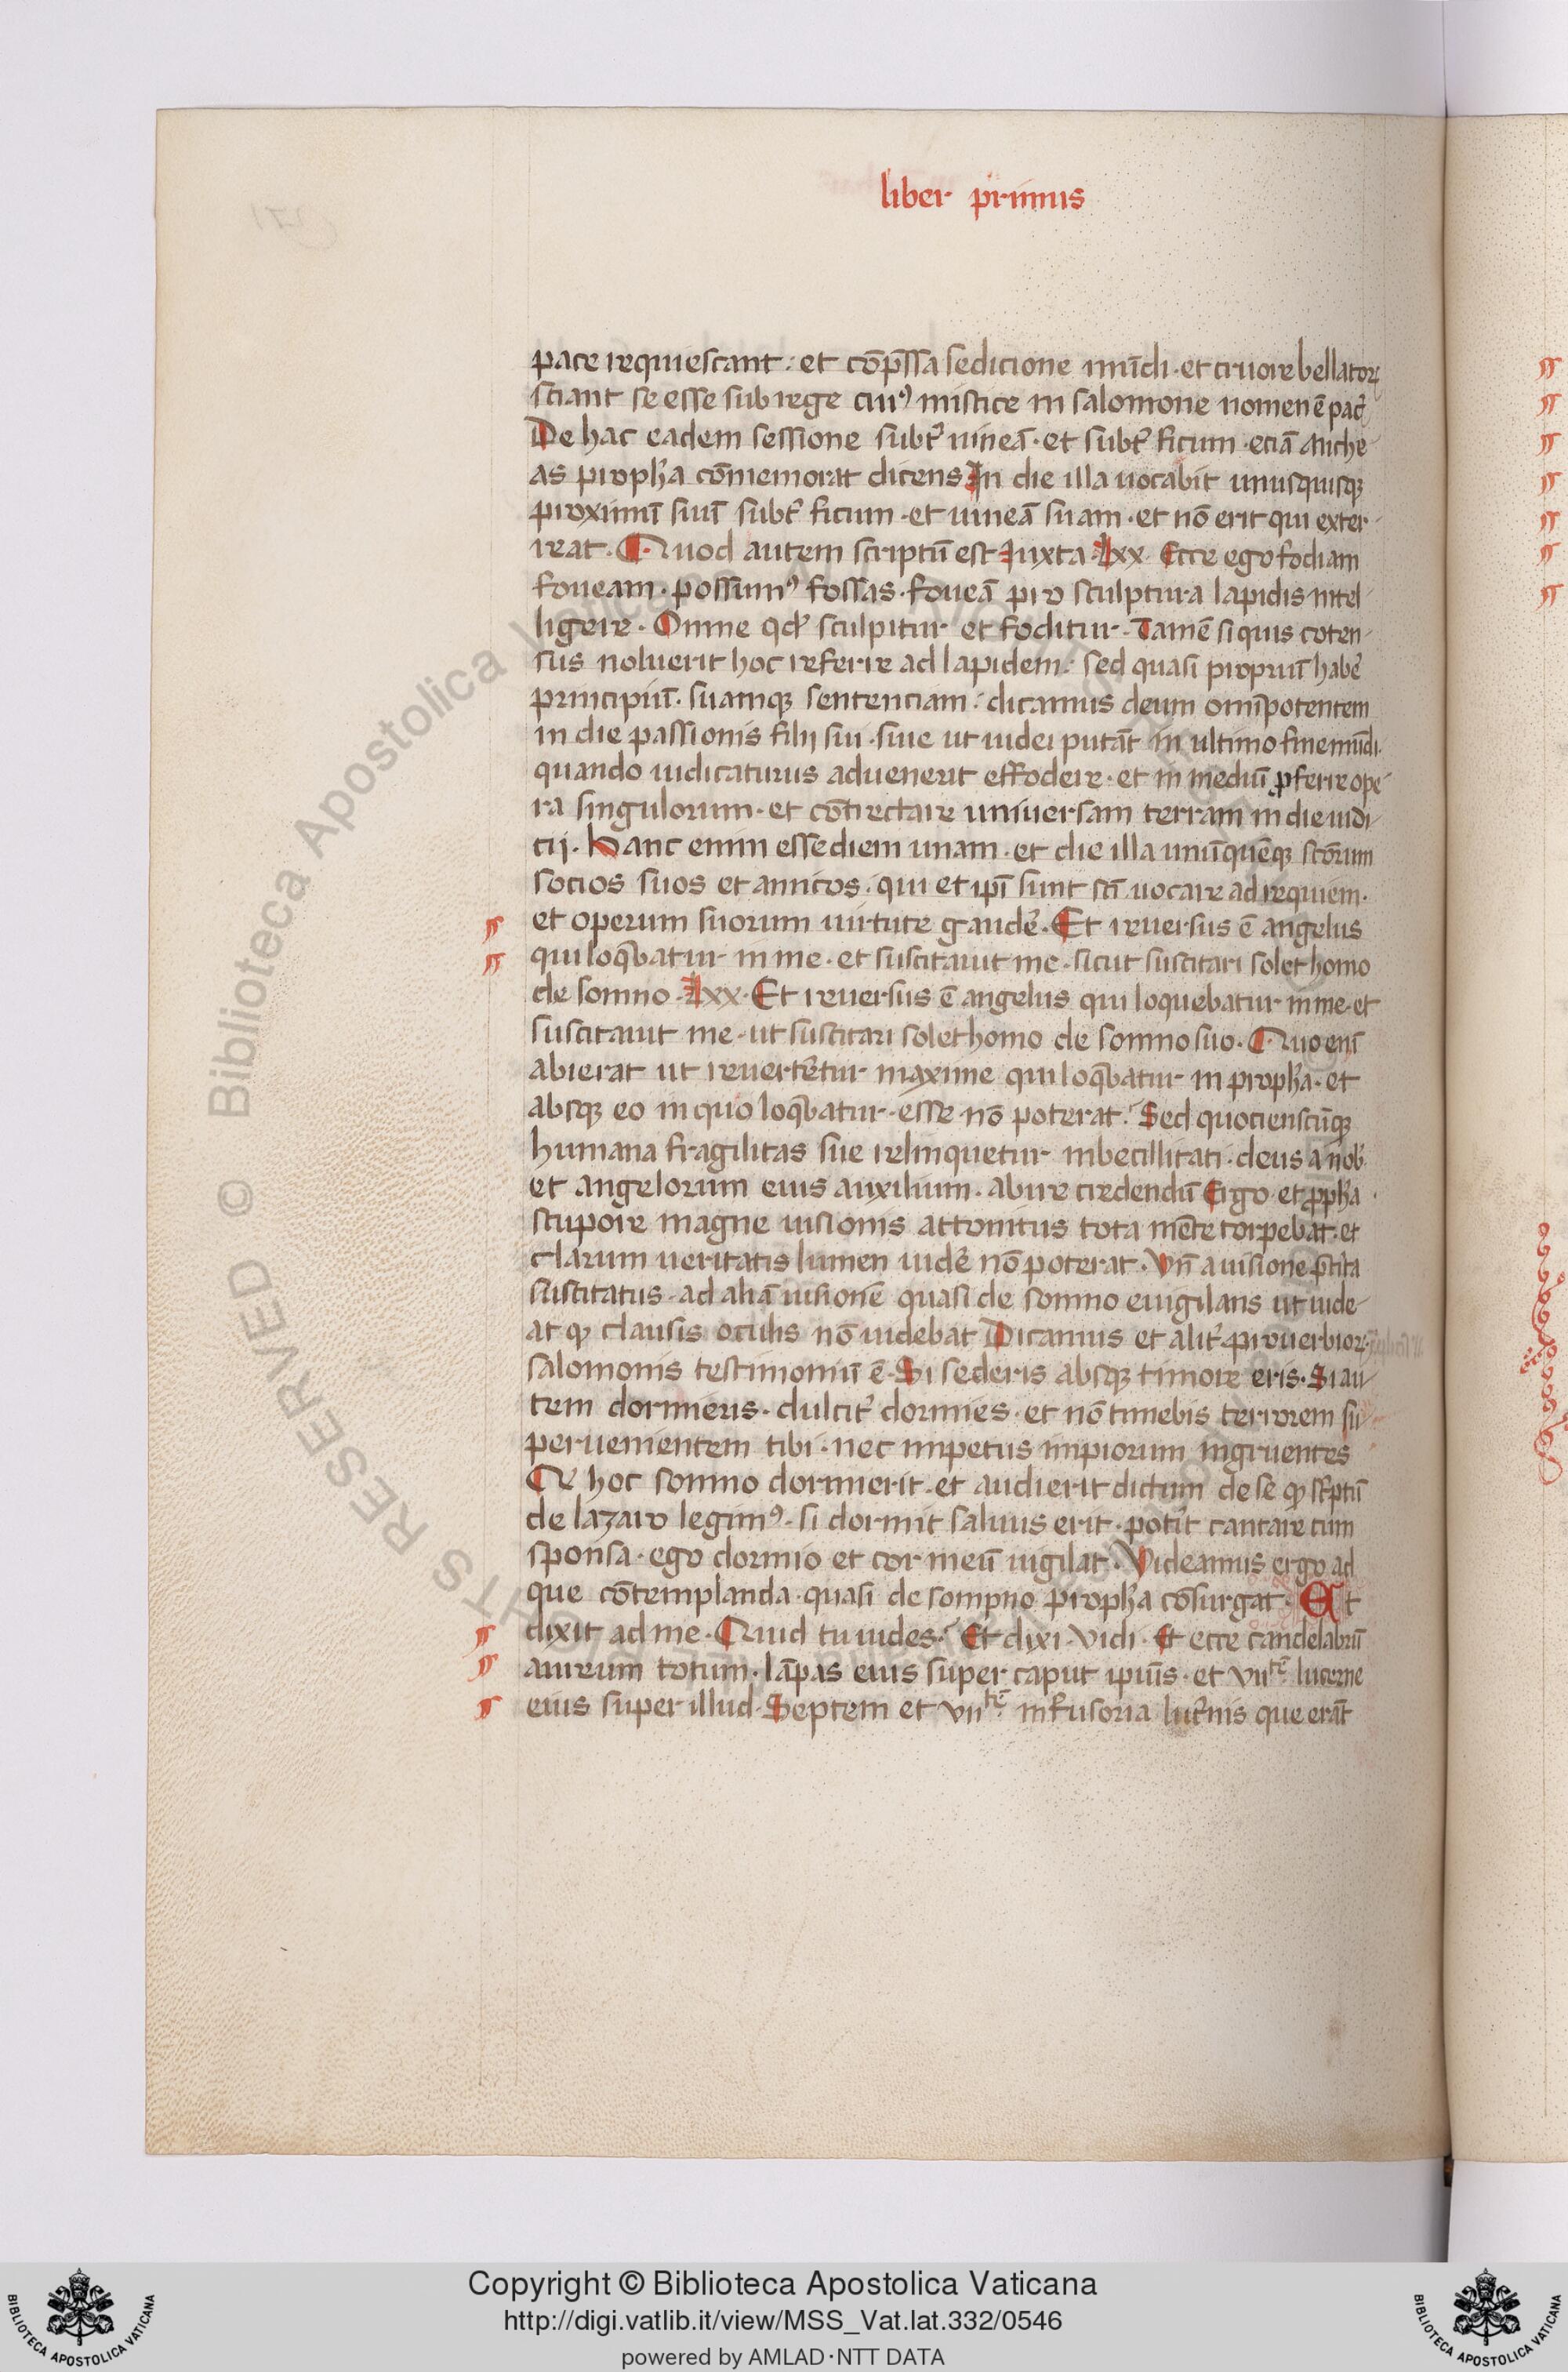 liber primus
pace requiescant: et co̅p̅ssa sedicione mu̅di. et cruore bellatorꝝ
sciant se esse sub rege cuiꝰ mistice in salomone nomen e̅ pac᷒
De hac eadem sessione subt᷒ uinea̅. et subt᷒ ficum. ecia̅ miche
as proph̅a co̅memorat dicens In die illa uocabit unusquisqꝫ
proximu̅ suu̅ subt᷒ ficum. et uinea̅ suam. et no̅ erit qui exter
reat. Quod autem scriptu̅ est Iuxta. lxx. Ecce ego fodiam
foueam. possumꝰ fossas. fouea̅ pro sculptura lapidis intel
ligere. Omne qd̕ sculpitur et foditur. Tame̅ si quis coten
sus noluerit hoc referre ad lapidem: sed quasi propriu̅ habe᷒
principiu̅. suamqꝫ sentenciam: dicamus deum om̅ipotentem
in die passionis filij sui. siue ut iudei puta̅t in ultimo fine mu̅di.
quando iudicaturus aduenerit effodere. et in mediu̅ ꝓferre ope
ra singulorum. et co̅trectare uniuersam terram in die iudi
cij. Hanc enim esse diem unam. et die illa unu̅que̅qꝫ sc̅orum
socios suos et amicos. qui et ip̅i sunt sc̅i uocare ad requiem.
et operum suorum uirtute gaude᷒. Et reuersus e̅ angelus
qui loq̅batur in me. et suscitauit me. sicut suscitari solet homo
de somno. lxx. Et reuersus e̅ angelus qui loquebatur in me. et
suscitauit me. ut suscitari solet homo de somno suo. Quo eni̅
abierat ut reuertet᷒ur maxime qui loq̅batur in proph̅a. et
absqꝫ eo in quo loq̅batur. esse no̅ poterat. Sed quociensc̅u̅qꝫ
humana fragilitas sue relinquetur inbecillitati. deus a nob᷒
et angelorum eius auxilium. abire credendu̅ Ergo et ꝓph̅a
stupore magne uisionis attonitus tota me̅te torpebat. et
clarum ueritatis lumen uide᷒ no̅ poterat. Vn̅ a uisione p̅tita
suscitatus. ad alia̅ uisione̅ quasi de somno euigilans ut uide
at qꝫ clausis oculis no̅ uidebat Dicamus et alit᷒. prouerbiorꝝ
salomonis testimoniu̅ e̅. Si sederis absqꝫ timore eris. Si au
tem dormieris. dulcit᷒ dormies. et no̅ timebis terrorem su
peruenientem tibi. nec impetus impiorum ingruentes
Qi hoc somno dormierit. et audierit dictum de se qꝫ sc᷒ptu̅
de lazaro legimꝰ. si dormit saluus erit. pot᷒it cantare cum
sponsa. ego dormio et cor meu̅ uigilat. Videamus ergo ad
que co̅templanda. quasi de sompno proph̅a co̅surgat. Et
dixit ad me. Quid tu uides. Et dixi. Vidi. Et ecce candelabru̅
aureum totum. la̅pas eius super caput ipiu̅s. et vii te̅ lucerne
eius super illud. Septem et vii te̅ infusoria luc᷒nis que era̅t
© Biblioteca Apostolica Vaticana
RIGHTS RESERVED
Copyright © Biblioteca Apostolica Vaticana
http://digi.vatlib.it/view/MSS_Vat.lat.332/0546
powered by AMLAD·NTT DATA
BIBLIOTECA APOSTOLICA VATICANA
BIBLIOTECA APOSTOLICA VATICANA